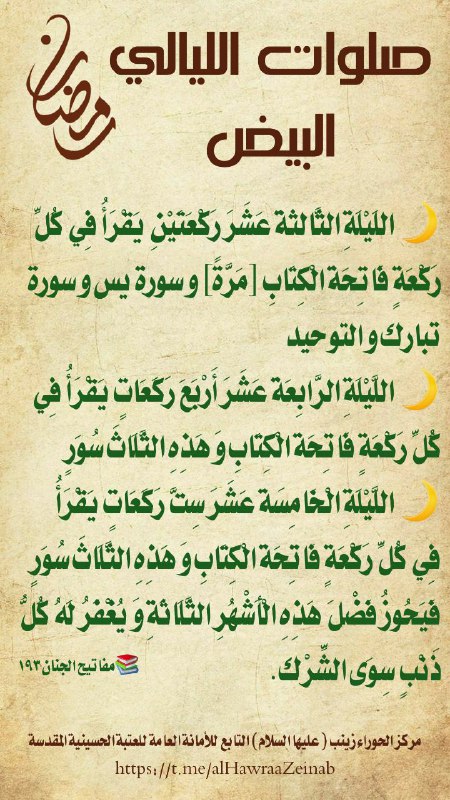 صلوات الليالي
البيض
رمضان
🌙 اللَيْلَةِ الثَّالثة عَشَرَ رَكْعَتَيْنِ يَقْرَأُ فِي كُلِّ
رَكْعَةٍ فَاتِحَة الْكِتَابِ [مَرَّةً] وسورة يس وسورة
تبارك والتوحيد
🌙 اللَّيْلَةِ الرَّابِعَة عَشَرَ أَرْبَعَ رَكَعَاتٍ يَقْرَأُ فِي
كُلِّ رَكْعَةٍ فَاتِحَة الْكِتَابِ وَ هَذِهِ الثَّلَاثَ سُوَرٍ
🌙 اللَّيْلَةِ الْخَامِسَة عَشَرَ سِتَّ رَكَعَاتٍ يَقْرَأُ
فِي كُلِّ رَكْعَةٍ فَاتِحَة الْكِتَابِ وَ هَذِهِ الثَّلَاثَ سُوَرٍ
فَيَحُوزُ فَضْلَ هَذِهِ الْأَشْهُرِ الثَّلَاثَةِ وَ يُغْفَرُ لَهُ كُلُّ
ذَنْبٍ سِوَى الشِّرْكِ.
📚مفاتيح الجنان ١٩٣
مركز الحوراء زينب ( عليها السلام ) التابع للأمانة العامة للعتبة الحسينية المقدسة
https://t.me/alHawraaZeinab